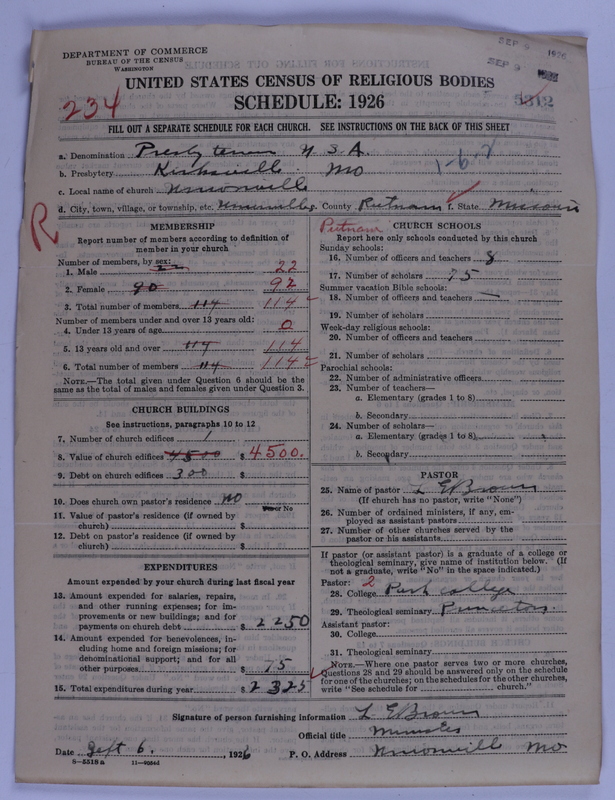 DEPARTMENT OF COMMERCE
BUREAU OF THE CENSUS
WASHINGTON
SEP 9 1926
SEP 9
UNITED STATES CENSUS OF RELIGIOUS BODIES
SCHEDULE: 1926
234
5312
FILL OUT A SEPARATE SCHEDULE FOR EACH CHURCH. SEE INSTRUCTIONS ON THE BACK OF THIS SHEET
a. Denomination Presbyterian U.S.A.
b. Presbytery Kirksville Mo
1-6-2
c. Local name of church Unionville
d. City, town, village, or township, etc. Unionville e. County Putnam f. State Missouri
R
MEMBERSHIP
Report number of members according to definition of
member in your church
Number of members, by sex:
1. Male 22 22
2. Female 90 92
3. Total number of members 114 114
Number of members under and over 13 years old:
4. Under 13 years of age 0
5. 13 years old and over 114 114
6. Total number of members 114 114
NOTE.—The total given under Question 6 should be the
same as the total of males and females given under Question 3.
CHURCH BUILDINGS
See instructions, paragraphs 10 to 12
7. Number of church edifices 1
8. Value of church edifices 4500 $ 4500.
9. Debt on church edifices 300 $
10. Does church own pastor's residence No
Yes or No
11. Value of pastor's residence (if owned by
church) $
12. Debt on pastor's residence (if owned by
church) $
EXPENDITURES
Amount expended by your church during last fiscal year
13. Amount expended for salaries, repairs,
and other running expenses; for im-
provements or new buildings; and for
payments on church debt $ 2250
14. Amount expended for benevolences, in-
cluding home and foreign missions; for
denominational support; and for all
other purposes $ 75
15. Total expenditures during year $ 2325
Putnam
CHURCH SCHOOLS
Report here only schools conducted by this church
Sunday schools:
16. Number of officers and teachers 8
17. Number of scholars 75
Summer vacation Bible schools:
18. Number of officers and teachers —
19. Number of scholars
Week-day religious schools:
20. Number of officers and teachers
21. Number of scholars
Parochial schools:
22. Number of administrative officers
23. Number of teachers—
a. Elementary (grades 1 to 8)
b. Secondary
24. Number of scholars—
a. Elementary (grades 1 to 8)
b. Secondary
PASTOR
25. Name of pastor L E Brown
(If church has no pastor, write "None")
26. Number of ordained ministers, if any, em-
ployed as assistant pastors
27. Number of other churches served by the
pastor or his assistants
If pastor (or assistant pastor) is a graduate of a college or
theological seminary, give name of institution below. (If
not a graduate, write "No" in the space indicated.)
Pastor: 2
28. College Park College
29. Theological seminary Princeton
Assistant pastor:
30. College
31. Theological seminary
NOTE.—Where one pastor serves two or more churches,
Questions 28 and 29 should be answered only on the schedule
for one of the churches; on the schedules for the other churches,
write "See schedule for church."
Signature of person furnishing information L E Brown
Official title Minister
Date Sept 6, 1926 P. O. Address Unionville Mo
8—5518 a 11—9354d